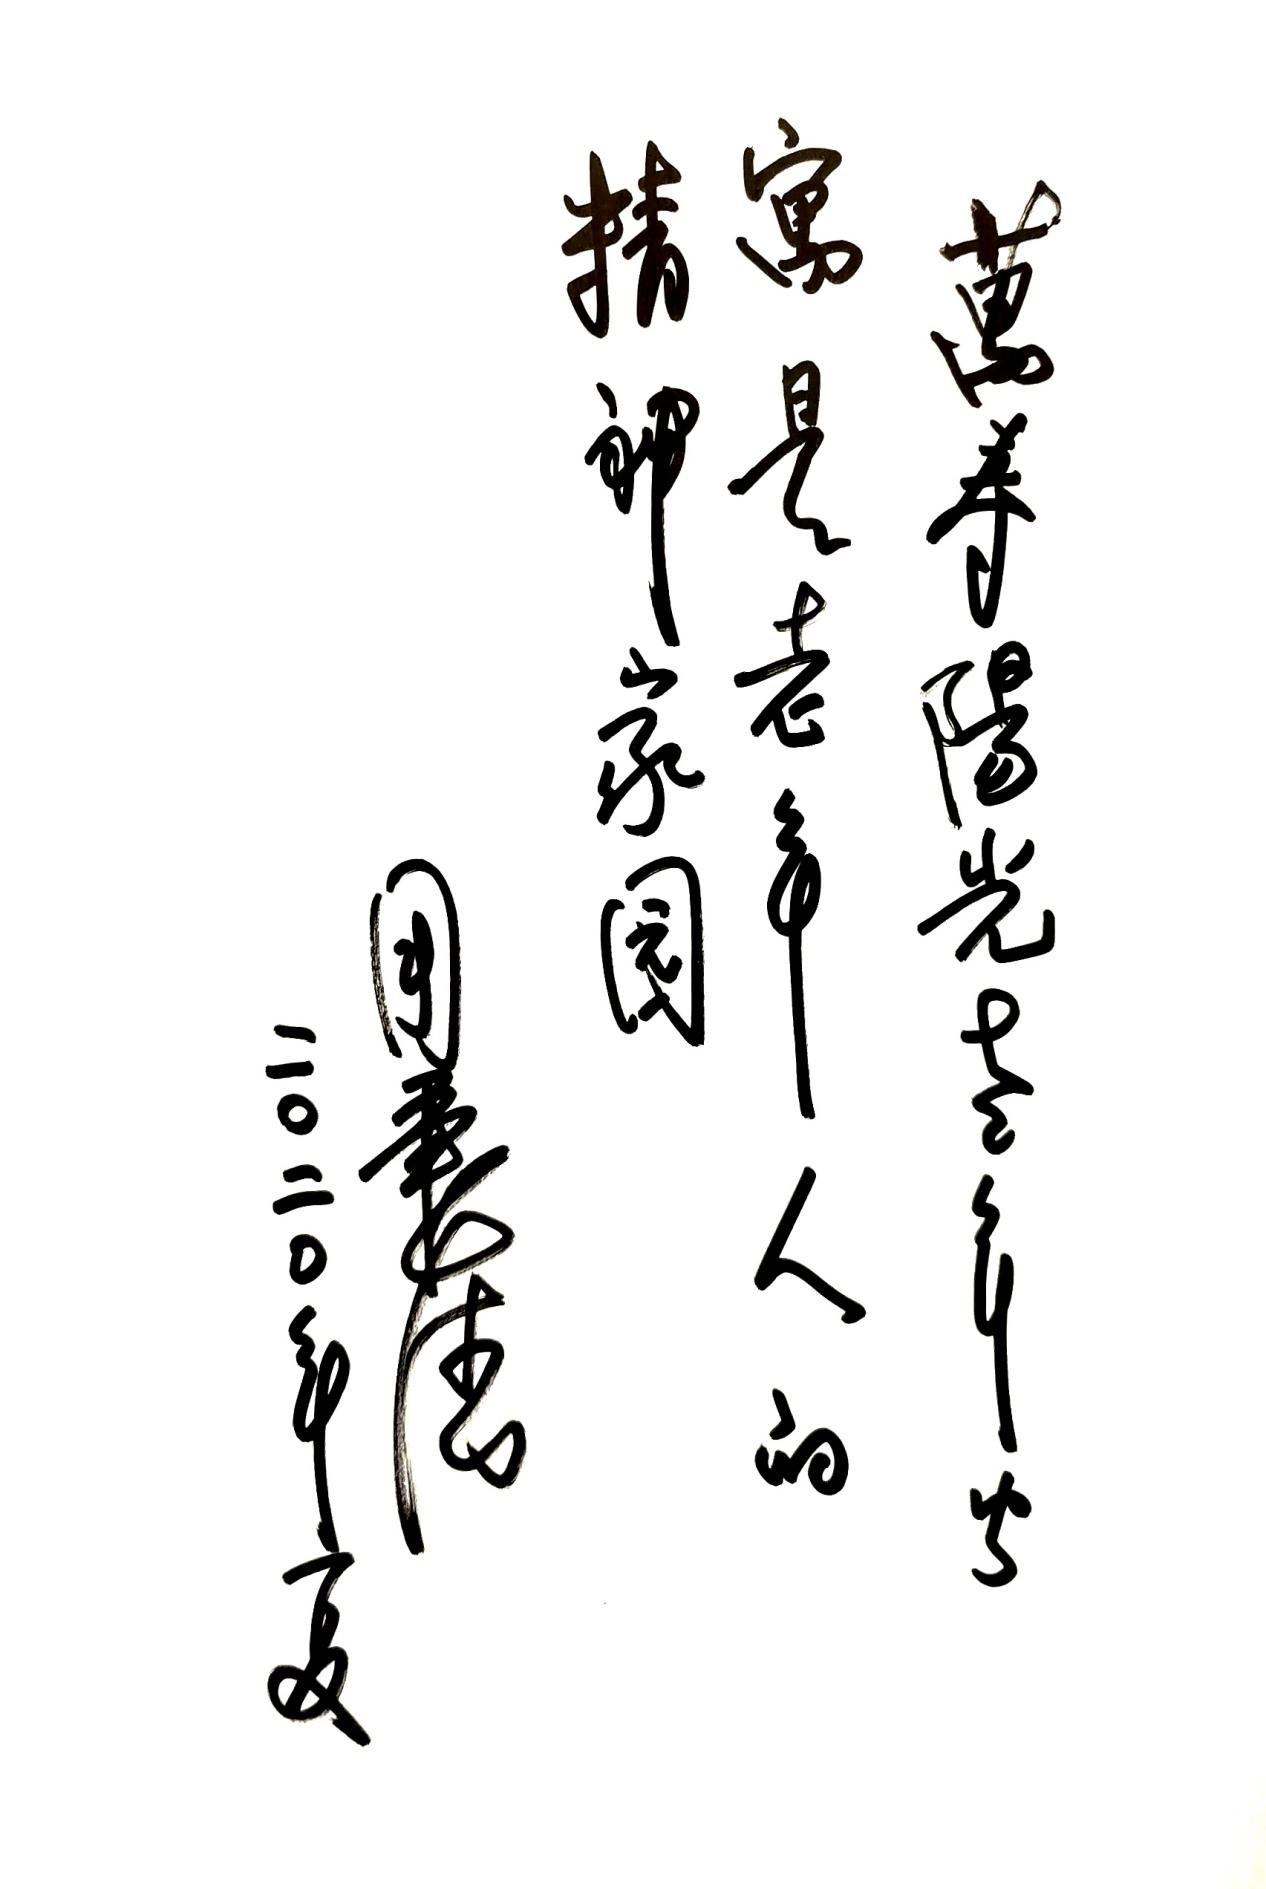 萬寿陽光老年公
寓是老年人的
精神家園
周秉德
二〇二〇年夏